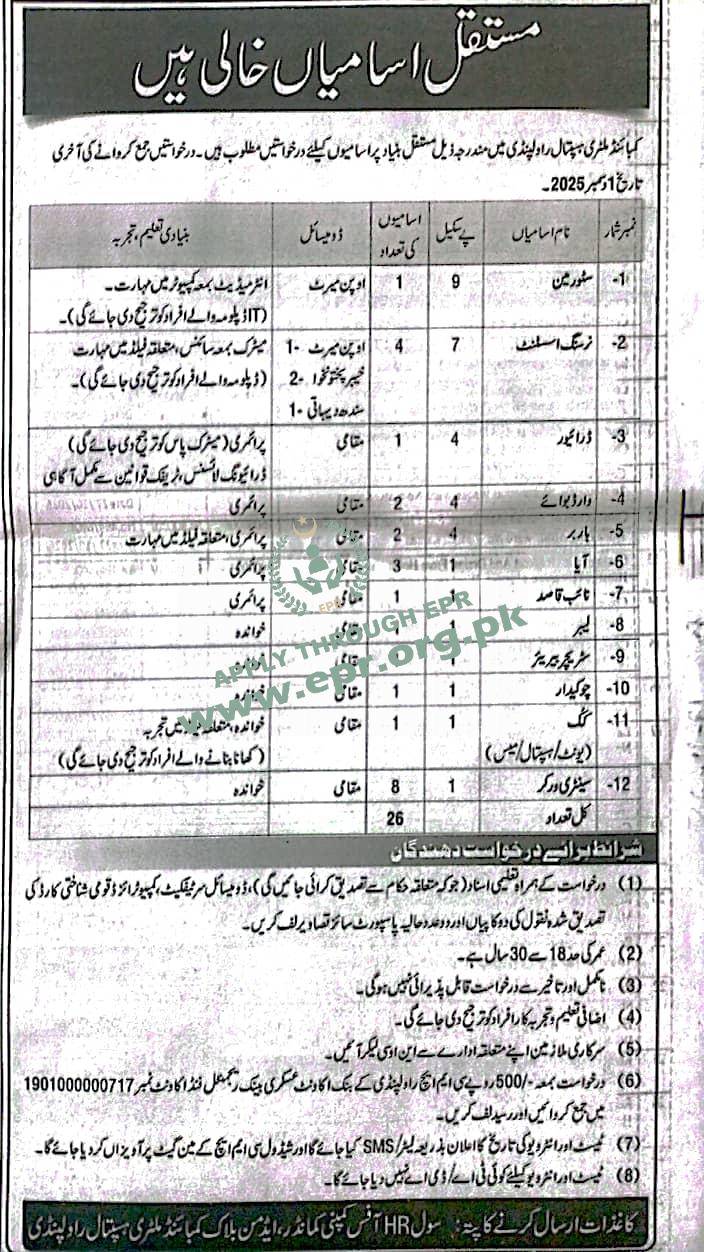 مستقل اسامیاں خالی ہیں
کمبائنڈ ملٹری ہسپتال راولپنڈی میں مندرجہ ذیل مستقل بنیاد پر اسامیوں کیلئے درخواستیں مطلوب ہیں۔ درخواستیں جمع کروانے کی آخری
تاریخ 1 دسمبر 2025۔
نمبر شمار نام اسامیاں پے سکیل اسامیوں کی تعداد ڈومیسائل بنیادی تعلیم، تجربہ
1- سٹورمین 9 1 اوپن میرٹ انٹرمیڈیٹ بمعہ کمپیوٹر میں مہارت۔
(IT ڈپلومہ والے افراد کو ترجیح دی جائے گی)۔
2- نرسنگ اسسٹنٹ 7 4 اوپن میرٹ -1 میٹرک بمعہ سائنس، متعلقہ فیلڈ میں مہارت
خیبر پختونخوا -2 (ڈپلومہ والے افراد کو ترجیح دی جائے گی)۔
سندھ دیہاتی -1
3- ڈرائیور 4 1 مقامی پرائمری (میٹرک پاس کو ترجیح دی جائے گی)
ڈرائیونگ لائسنس، ٹریفک قوانین سے مکمل آگاہی
4- وارڈ بوائے 4 2 مقامی پرائمری
5- باربر 4 2 مقامی پرائمری، متعلقہ فیلڈ میں مہارت
6- آیا 1 3 مقامی پرائمری
7- نائب قاصد 1 1 مقامی پرائمری
8- لیبر 1 1 مقامی خواندہ
9- سٹریچر بیریئر 1 مقامی خواندہ
10- چوکیدار 1 1 مقامی خواندہ
11- کک 1 1 مقامی خواندہ، متعلقہ فیلڈ میں تجربہ
(یونٹ/ہسپتال/میس) (کھانا بنانے والے افراد کو ترجیح دی جائے گی)
12- سینٹری ورکر 1 8 مقامی خواندہ
کل تعداد 26
APPLY THROUGH EPR
www.epr.org.pk
EPR
شرائط برائے درخواست دھندگان
(1) درخواست کے ہمراہ تعلیمی اسناد (جو کہ متعلقہ حکام سے تصدیق کرائی جائیں گی)، ڈومیسائل سرٹیفکیٹ، کمپیوٹرائزڈ قومی شناختی کارڈ کی
تصدیق شدہ نقول کی دو کاپیاں اور دو عدد حالیہ پاسپورٹ سائز تصاویر لف کریں۔
(2) عمر کی حد 18 سے 30 سال ہے۔
(3) نامکمل اور تاخیر سے درخواست قابل پذیرائی نہیں ہوگی۔
(4) اضافی تعلیم و تجربہ کار افراد کو ترجیح دی جائے گی۔
(5) سرکاری ملازمین اپنے متعلقہ ادارے سے این او سی لیکر آئیں۔
(6) درخواست بمعہ -/500 روپے سی ایم ایچ راولپنڈی کے بنک اکاونٹ عسکری بینک ریجمنٹل فنڈ اکاونٹ نمبر 1901000000717
میں جمع کروائیں اور رسید لف کریں۔
(7) ٹیسٹ اور انٹرویو کی تاریخ کا اعلان بذریعہ لیٹر/SMS کیا جائے گا اور شیڈول سی ایم ایچ کے مین گیٹ پر آویزاں کر دیا جائے گا۔
(8) ٹیسٹ اور انٹرویو کیلئے کوئی ٹی اے/ڈی اے نہیں دیا جائے گا۔
کاغذات ارسال کرنے کا پتہ: سول HR آفس کمپنی کمانڈر، ایڈمن بلاک کمبائنڈ ملٹری ہسپتال راولپنڈی